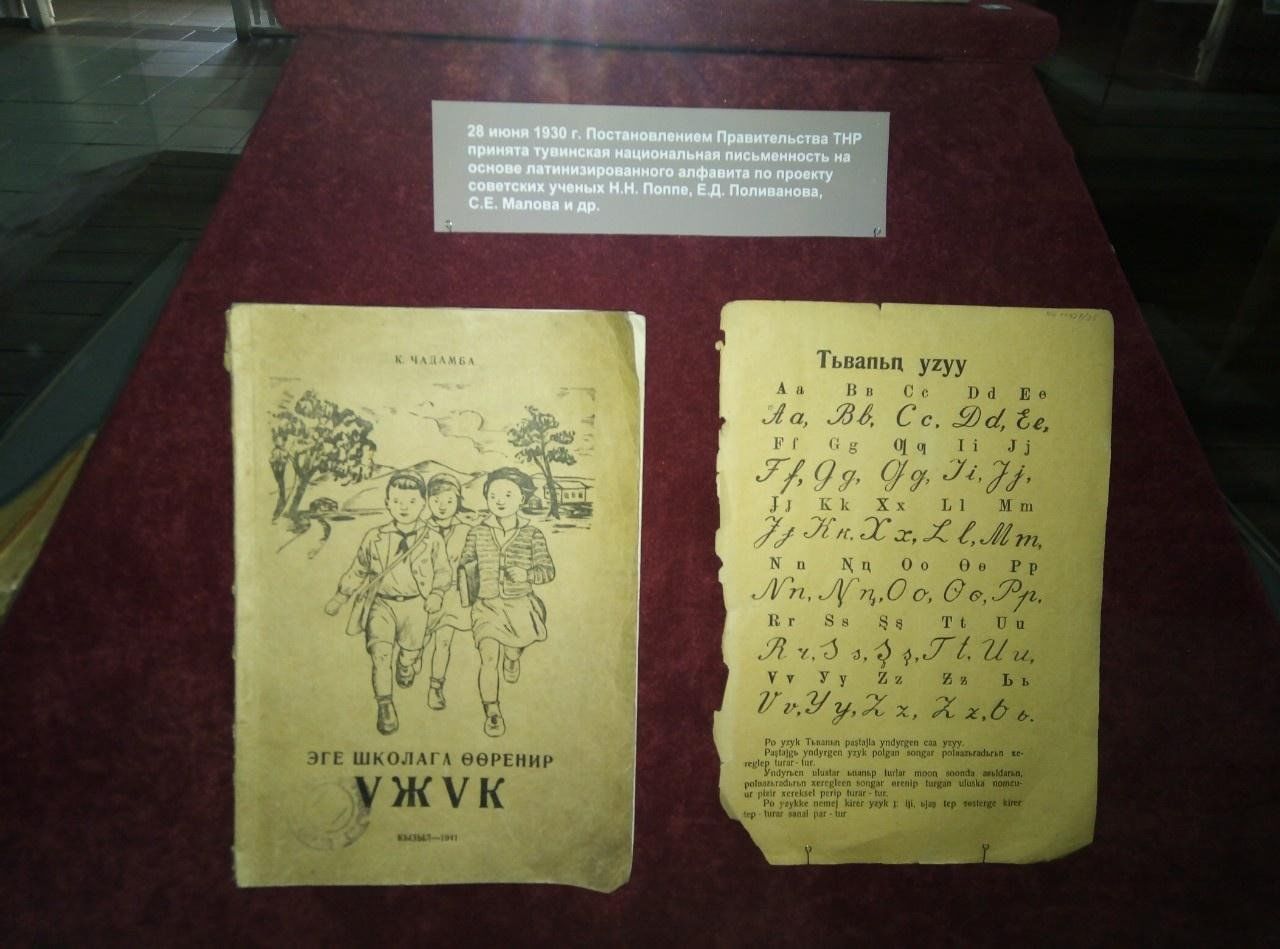 28 июня 1930 г. Постановлением Правительства ТНР
принята тувинская национальная письменность на
основе латинизированного алфавита по проекту
советских ученых Н.Н. Поппе, Е.Д. Поливанова,
С.Е. Малова и др.
К. ЧАДАМБА
ЭГЕ ШКОЛАГА ӨӨРЕНИР
ҮЖҮК
КЫЗЫЛ—1941
Тьваньң yzyy
A a B ʙ C c D d E e
Aa, Bb, Cc, Dd, Ee,
F f G g Ƣ ƣ I i J j
Ff, Gg, Ƣƣ, Ii, Jj,
Ɉ ɉ K k X x L l M m
Ɉɉ Kk, Xx, Ll, Mm,
N n Ņ ņ O o Ө ө P p
Nn, Ņņ, Oo, Өө, Pp,
R r S s Ş ş T t U u
Rr, Ss, Şş, Tt, Uu,
V v Y y Z z Ƶ ƶ Ь ь
Vv, Yy, Zz, Ƶƶ, ь
Po yzyk Tьvanьņ paştajla yndyrgen caa yzyy.
yndyrgen yzyk polgan soņgar
reglep turar-tur.
ulustar turlar mooņ soonda
xeregleen soņgar өrenip turgan uluska nomcu-
ur pizir xereksel perip turar-tur.
Po yzykke nemej kirer yzyk tep kirer
tep-turar sanal par-tur